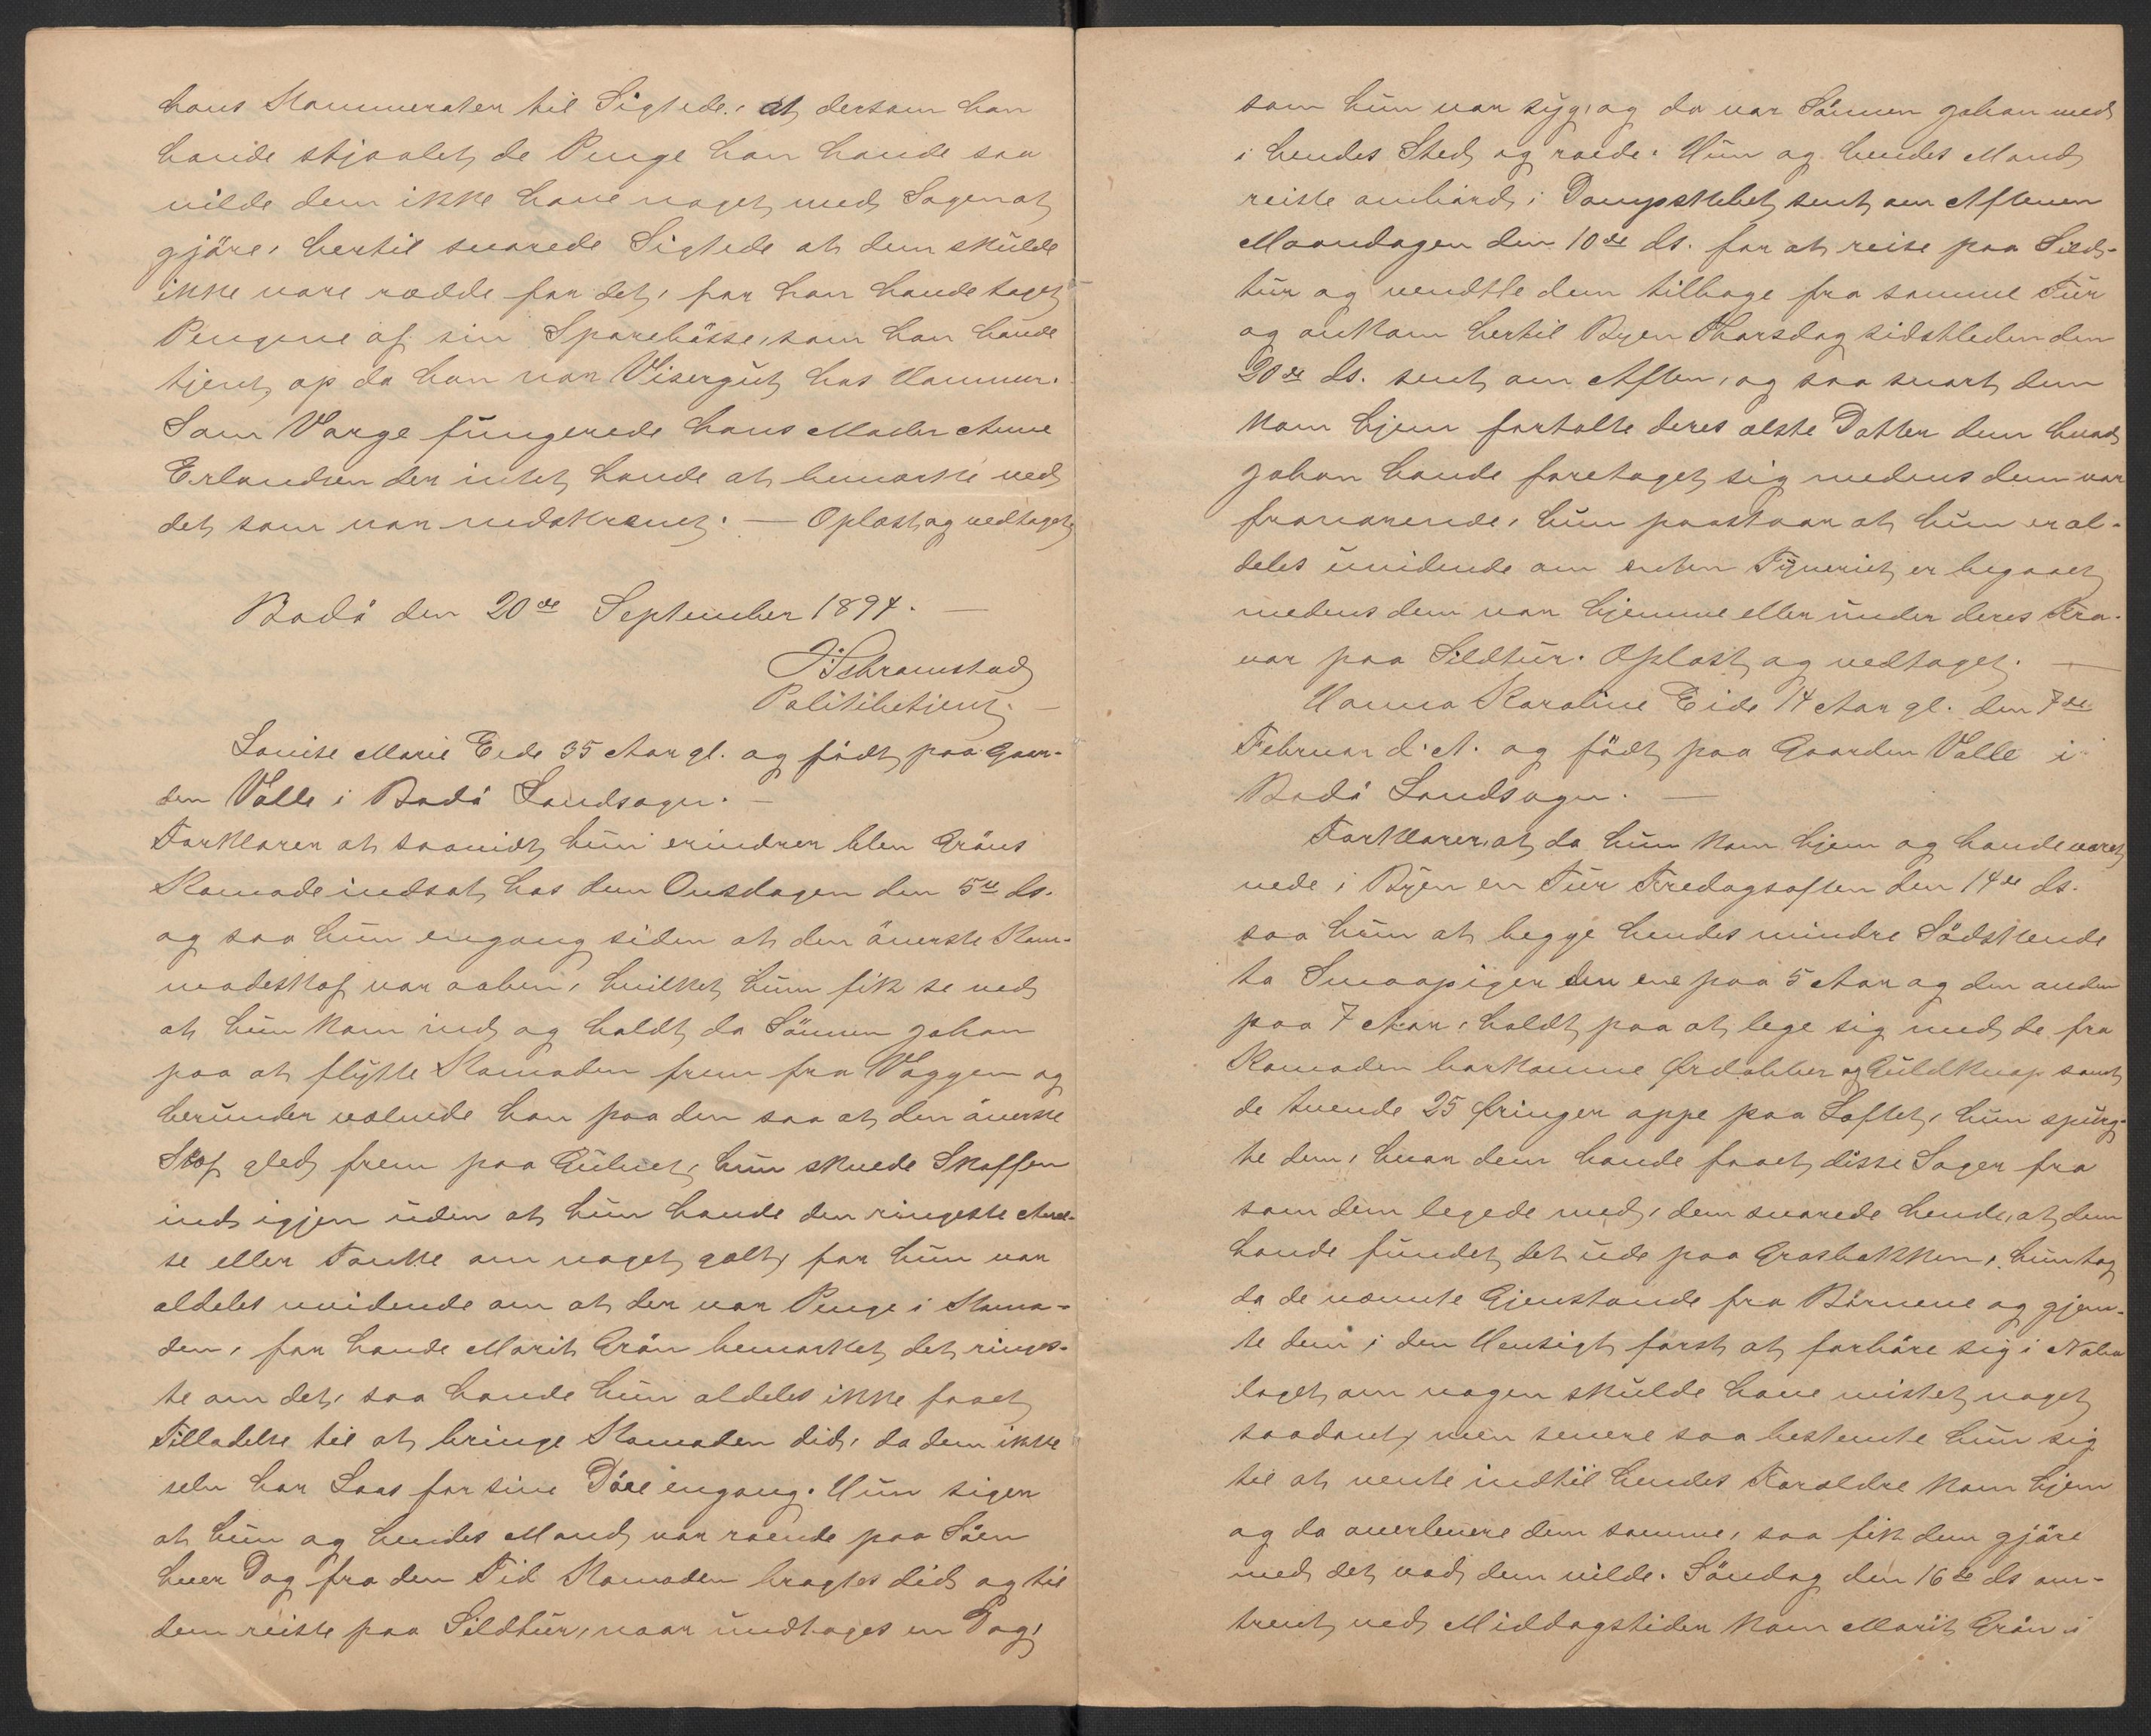 hans Kammerater til Sigtede, at dersom han
havde stjaalet de Penge han havde saa
vilde dem ikke have noget med Sagen at
gjöre, hertil svarede Sigtede at dem skulde
ikke være rædde for det, for han havde taget
Pengene af sin Sparebösse, som han havde
tjent op da han var Visergut hos Hammer.
Som Værge fungerede hans Moder Anne
Erlandsen der intet havde at bemærke ved
det som var nedskrevet. — Oplæst og vedtaget
Bodö den 20de September 1894. —
J. Schramstad
Politibetjent. —
Lovise Marie Eide 35 Aar gl. og födt paa Gaar-
den Valle i Bodö Landsogn. —
Forklarer at saavidt hun erindrer blev Gröns
Komode indsat hos dem Onsdagen den 5te ds.
og saa hun engang siden at den överste Kom-
modeskof var aaben, hvilket hun fik se ved
at hun kom ind og holdt da Sönnen Johan
paa at flytte Komoden frem fra Væggen og
herunder væltede han paa den saa at den överste
Skof gled frem paa Gulvet, hun skuede Skoffen
ind igjen uden at hun havde den ringeste Anel-
se eller Tanke om noget galt, for hun var
aldeles uvidende om at der var Penge i Komo-
den, for havde Marit Grön bemærket det ringes-
te om det, saa havde hun aldeles ikke faaet
Tilladelse til at bringe Komoden did, da dem ikke
selv har Laas for sine Döre engang. Hun siger
at hun og hendes Mand var roende paa Söen
hver Dag fra den Tid Komoden bragtes did og til
dem reiste paa Sildtur, naar undtages en Dag,
som hun var syg, og da var Sönnen Johan med
i hendes Sted og roede. Hun og hendes Mand
reiste ombord i Dampskibet sent om Aftenen
Maandagen den 10de ds. for at reise paa Sild-
tur og vendtte dem tilbage fra samme Tur
og ankom hertil Byen Thorsdag sidstleden den
20de ds. sent om Aften, og saa snart dem
kom hjem fortalte deres ælste Datter dem hvad
Johan havde foretaget sig medens dem var
fraværende, hun paastaar at hun er al-
deles uvidende om enten Tyveriet er begaaet
medens dem var hjemme eller under deres Fra-
vær paa Sildtur. Oplæst og vedtaget. —
Hanna Karoline Eide 14 Aar gl. den 7de
Februar d. A. og födt paa Gaarden Valle i
Bodö Landsogn. —
Forklarer, at da hun kom hjem og havde været
nede i Byen en Tur Fredagsaften den 14de ds.
saa hun at begge hendes mindre Södskende
to Smaapiger den ene paa 5 Aar og den anden
paa 7 Aar, holdt paa at lege sig med de fra
Komoden borkomne Ørdobber og Guldknap samt
de tvende 25 Øringer oppe paa Loftet, hun spurg-
te dem, hvor dem havde faaet disse Sager fra
som dem legede med, dem svarede hende, at dem
havde fundet det ude paa Græsbakken, hun tog
da de nævnte Gjenstande fra Börnene og gjem-
te dem i den Hensigt först at forhöre sig i Nabo
laget om nogen skulde have mistet noget
saadant, men senere saa bestemte hun sig
til at vente indtil hendes Forældre kom hjem
og da overlevere dem samme, saa fik dem gjöre
med det vad dem vilde. Söndag den 16de ds om-
trent ved Middagstiden kom Marit Grön i